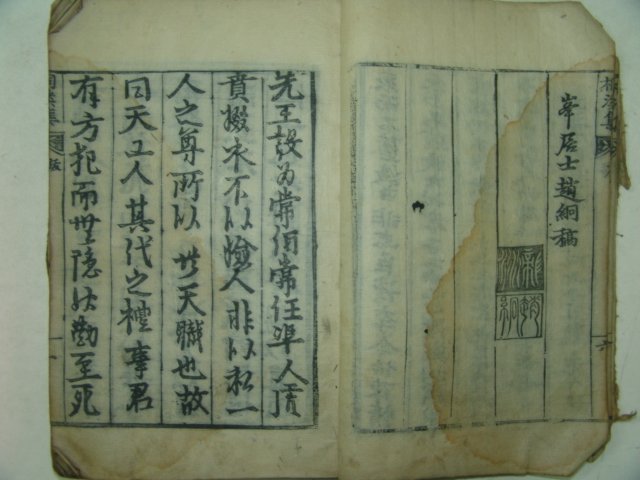 峯居士趙絅稿
先王設為常伯常任準人虎
賁掇衣不以憸人非以私一
人之尊所以共天職也故
曰天工人其代之禮事君
有方犯而無隱服勤至死